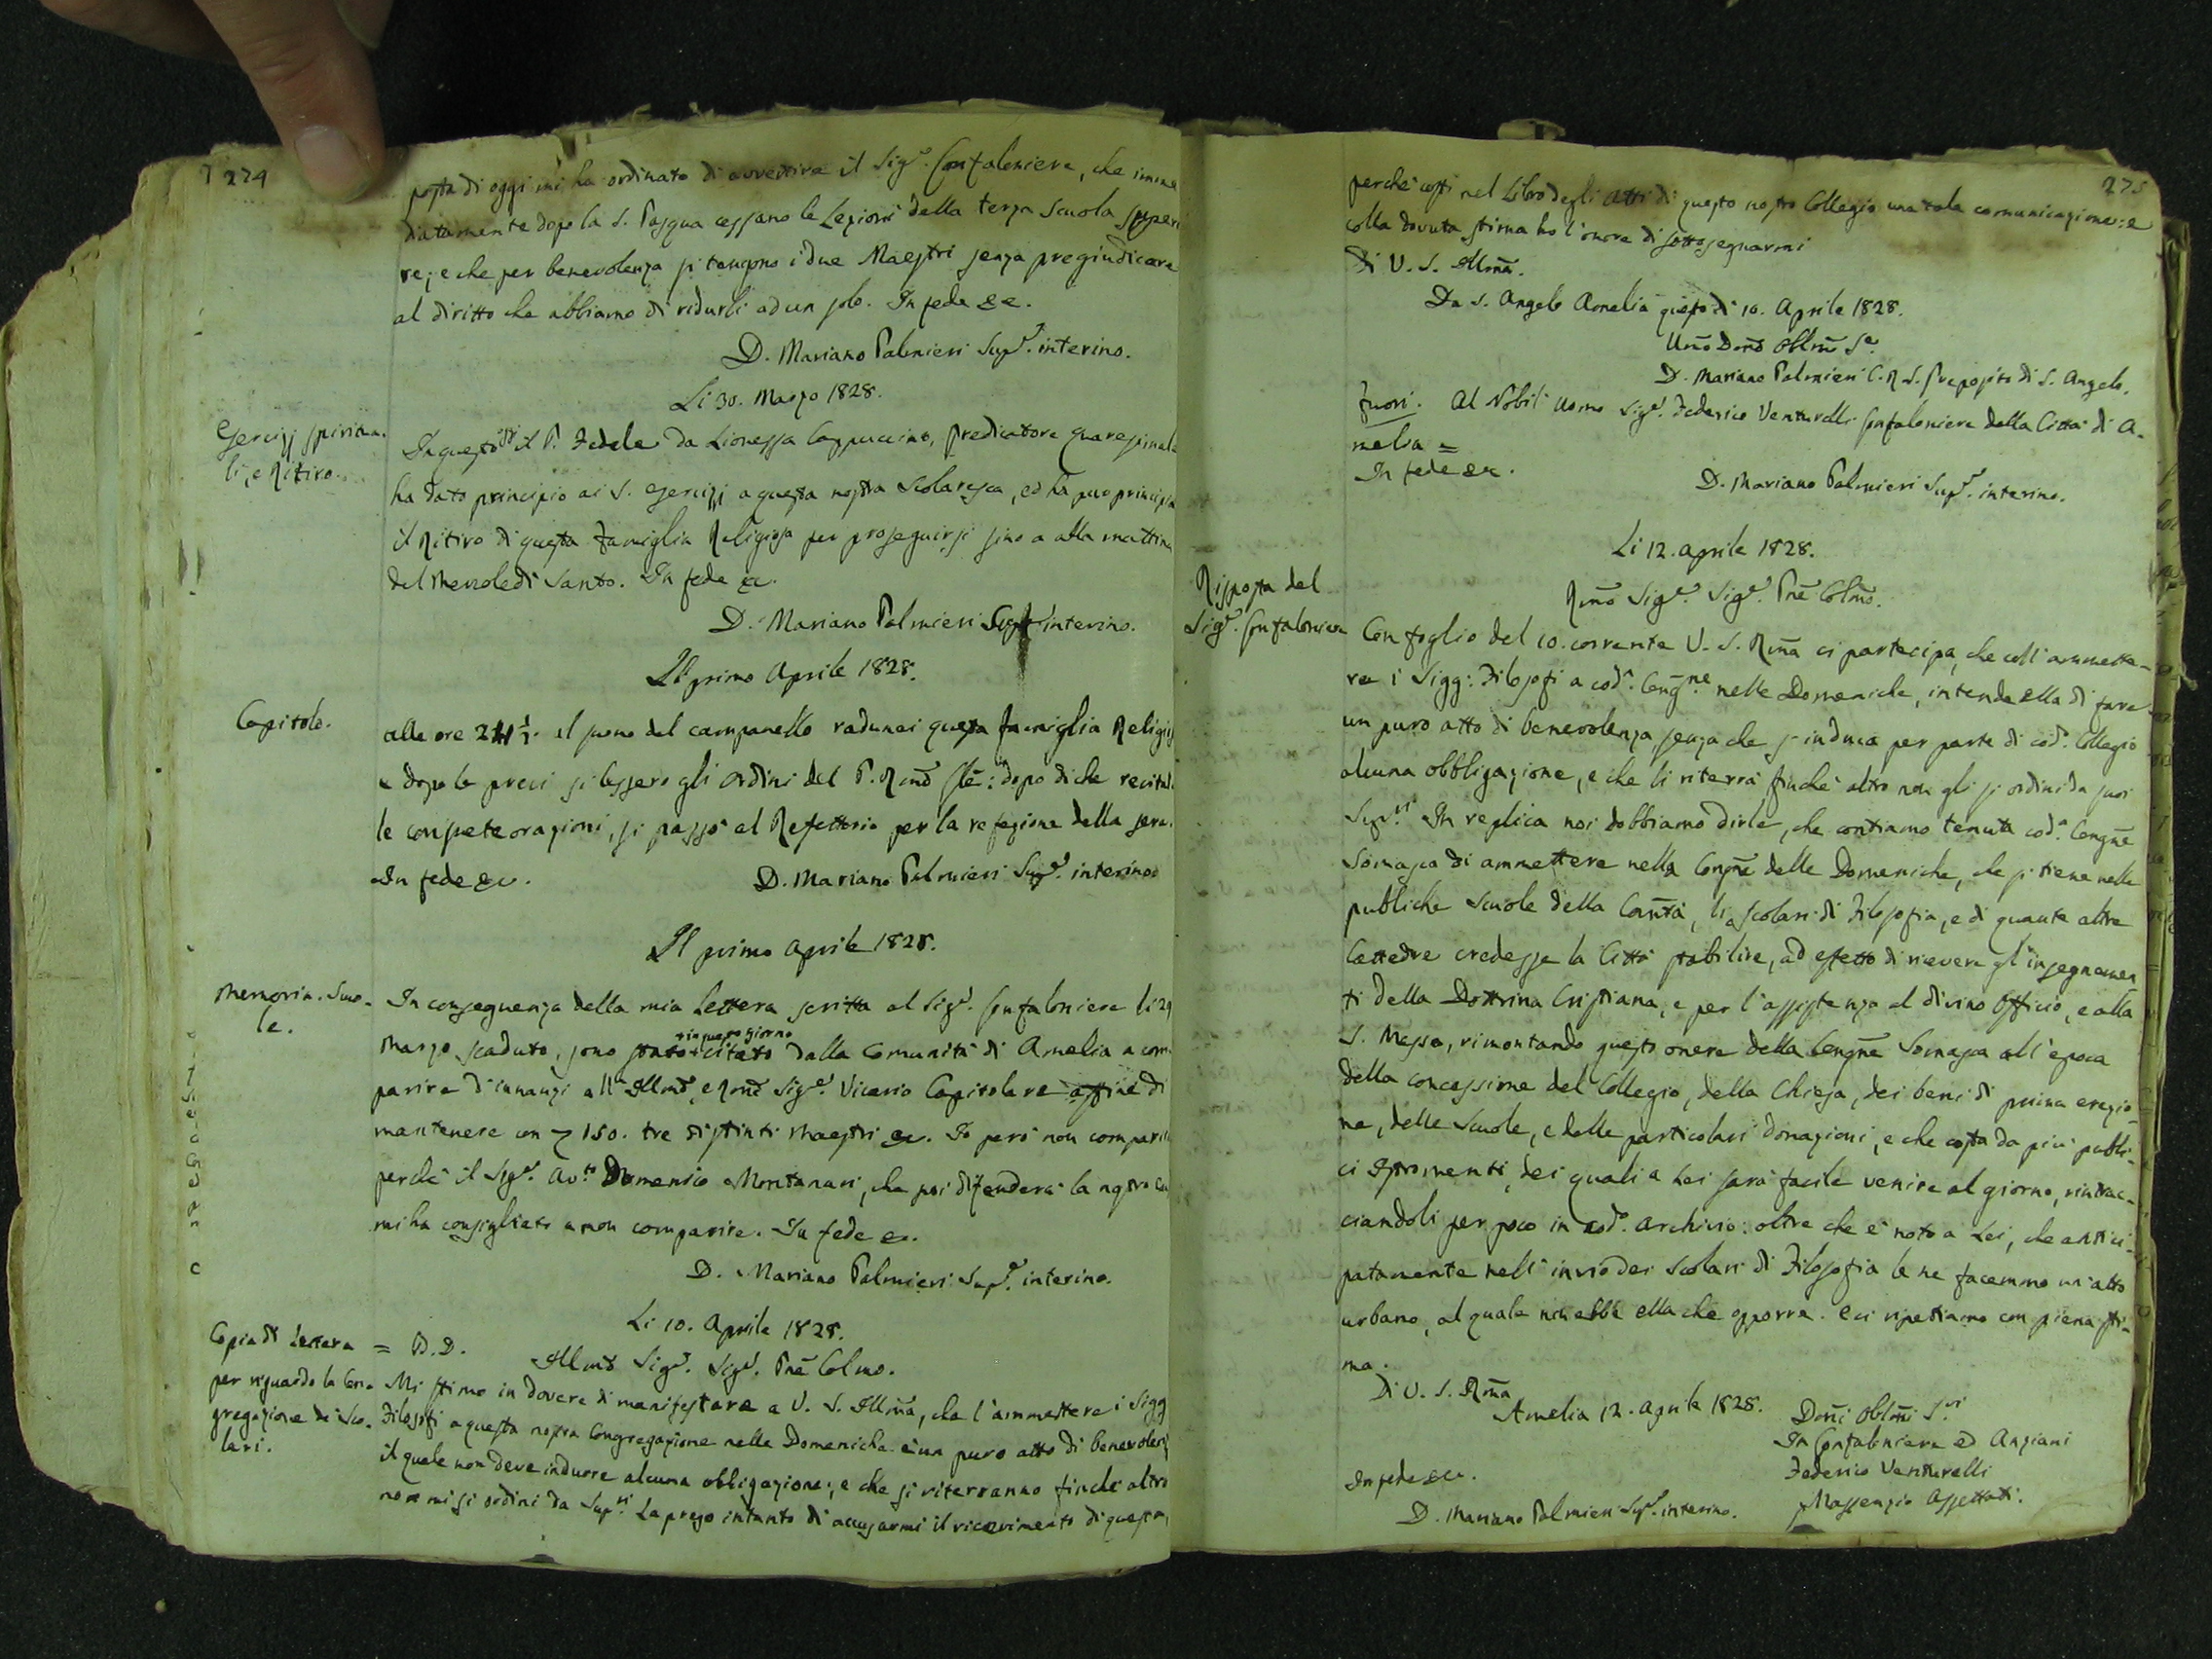 274
posta di oggi mi ha ordinato di avvertire il Sig.r Gonfaloniere, che imme
diatamente dopo la S. Pasqua cessano le Lezioni della terza Scuola Superi
re; e che per benevolenza si tengono i due Maestri senza pregiudicare
al diritto che abbiamo di ridurli ad un solo. In fede &c.
D. Mariano Palmieri Sup.e interino.
Li 30. Marzo 1828.
Esercizj spiritua-
li, e Ritiro.
In questo dì il P. Fedele da Lionessa Cappuccino, Predicatore Quaresimale
ha dato principio ai S. Esercizj a questa nostra Scolaresca, ed ha pure principio
il Ritiro di questa Famiglia Religiosa per proseguirsi sino a alla mattina
del Mercoledì Santo. In fede &c.
D. Mariano Palmieri Sup.e interino.
Il primo Aprile 1828.
Capitolo.
alle ore 24 ½. al suono del campanello radunai questa famiglia Religio
e dopo le preci si lessero gli ordini del P. Rmo Gle: dopo di che recitate
le consuete orazioni, si passò al Refettorio per la refezione della sera.
In fede &c.
D. Mariano Palmieri Sup.e interino.
Il primo Aprile 1828.
Memoria. Scuo-
le.
In conseguenza della mia Lettera scritta al Sig.r Gonfaloniere li 29
Marzo scaduto, sono stato citato dalla Comunità di Amelia a com
in questo giorno
parire dinnanzi all' Illmo, e Rmo Sig.r Vicario Capitolare affine di
mantenere con 150. tre distinti Maestri &c. Io però non comparii
perchè il Sig.r Av.to Domenico Montanari, che poi difenderà la nostra Cau
mi ha consigliato a non comparire. In fede &c.
D. Mariano Palmieri Sup.e interino.
Li 10. Aprile 1828.
Copia di Lettera
per riguardo la Con-
gregazione de' Sco-
lari.
= B.D.
Illmo Sig.r Sig.r Pne Colmo.
Mi stimo in dovere di manifestare a V. S. Illma, che l'ammettere i Sigg
Filosofi a questa nostra Congregazione nelle Domeniche è un puro atto di benevolenz
il quale non deve indurre alcuna obbligazione; e che si riterranno finchè altro
non mi si ordini da Sup.ri La prego intanto di accusarmi il ricevimento di questa,
275
perchè costi nel Libro degli Atti di questo nostro Collegio una tale comunicazione: e
colla dovuta stima ho l'onore di sottosegnarmi
Di V. S. Illma.
Da S. Angelo Amelia questo dì 10. Aprile 1828.
Umo Dmo Obblmo Se.
D. Mariano Palmieri C.R.S. Preposito di S. Angelo.
Fuori. Al Nobil Uomo Sig.r Federico Venturelli Gonfaloniere della Città di A-
melia =
In fede &c.
D. Mariano Palmieri Sup.e interino.
Li 12. Aprile 1828.
Risposta del
Sig.r Gonfaloniere
Rmo Sig.r Sig.r Pne Colmo.
Con foglio del 10. corrente V. S. Rma ci partecipa, che coll'ammette-
re i Sigg: Filosofi a cod.a Cong.ne nelle Domeniche, intende Ella di fare
un puro atto di benevolenza senza che s'induca per parte di cod.o Collegio
alcuna obbligazione, e che li riterrà finchè altro non gli si ordini da suoi
Sup.ri In replica noi dobbiamo dirle, che contiamo tenuta cod.a Congne
Somasca di ammettere nella Congne delle Domeniche, che si tiene nelle
pubbliche Scuole della Comtà, li Scolari di Filosofia, e di quante altre
Cattedre credesse la Città stabilire, ad effetto di ricevere gl'insegnamen
ti della Dottrina Cristiana, e per l'assistenza al divino Officio, e alla
S. Messa, rimontando questo onere della Congne Somasca all'epoca
della concessione del Collegio, della Chiesa, dei beni di prima erezio-
ne, delle Scuole, e delle particolari donazioni, e che costa da più pubbli-
ci Istromenti, dei quali a Lei sarà facile venire al giorno, rintrac-
ciandoli per poco in cod.o Archivio: oltre che è noto a Lei, che antici-
patamente nell'invio dei Scolari di Filosofia le ne facemmo un atto
urbano, al quale non ebbe ella che opporre. E ci ripetiamo con piena sti-
ma.
Di V. S. Rma
Amelia 12. Aprile 1828.
Dmi Obblmi S.ri
In Gonfaloniere ed Anziani
Federico Venturelli
Massenzio Assettati.
In fede &c.
D. Mariano Palmieri Sup.e interino.